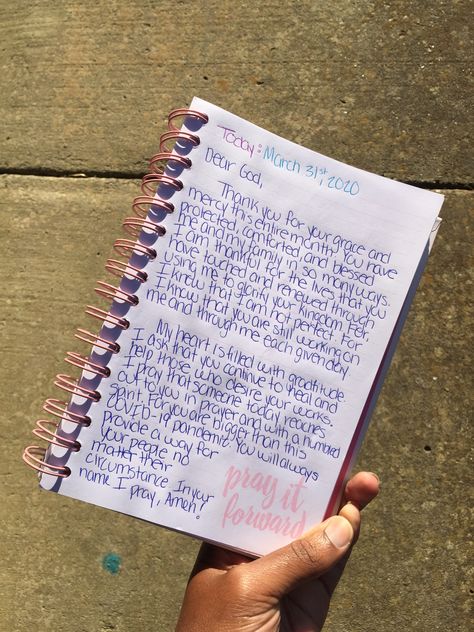 Today: March 31st, 2020
Dear God,
Thank you for your grace and
mercy this entire month. You have
protected, comforted and blessed
me and my family in so many ways.
I am thankful for the lives that you
have touched and renewed through
using me to glorify your kingdom. For,
I know that I am not perfect. For
I know that you are still working on
me and through me each given day.
My heart is filled with gratitude.
I ask that you continue to heal and
help those who desire your works.
I pray that someone today reaches
out to you in prayer and with a humbled
spirit. For you are bigger than this
COVID-19 pandemic. You will always
provide a way for
your people no
matter their
circumstance. In your
name I pray, Amen!
pray it
forward